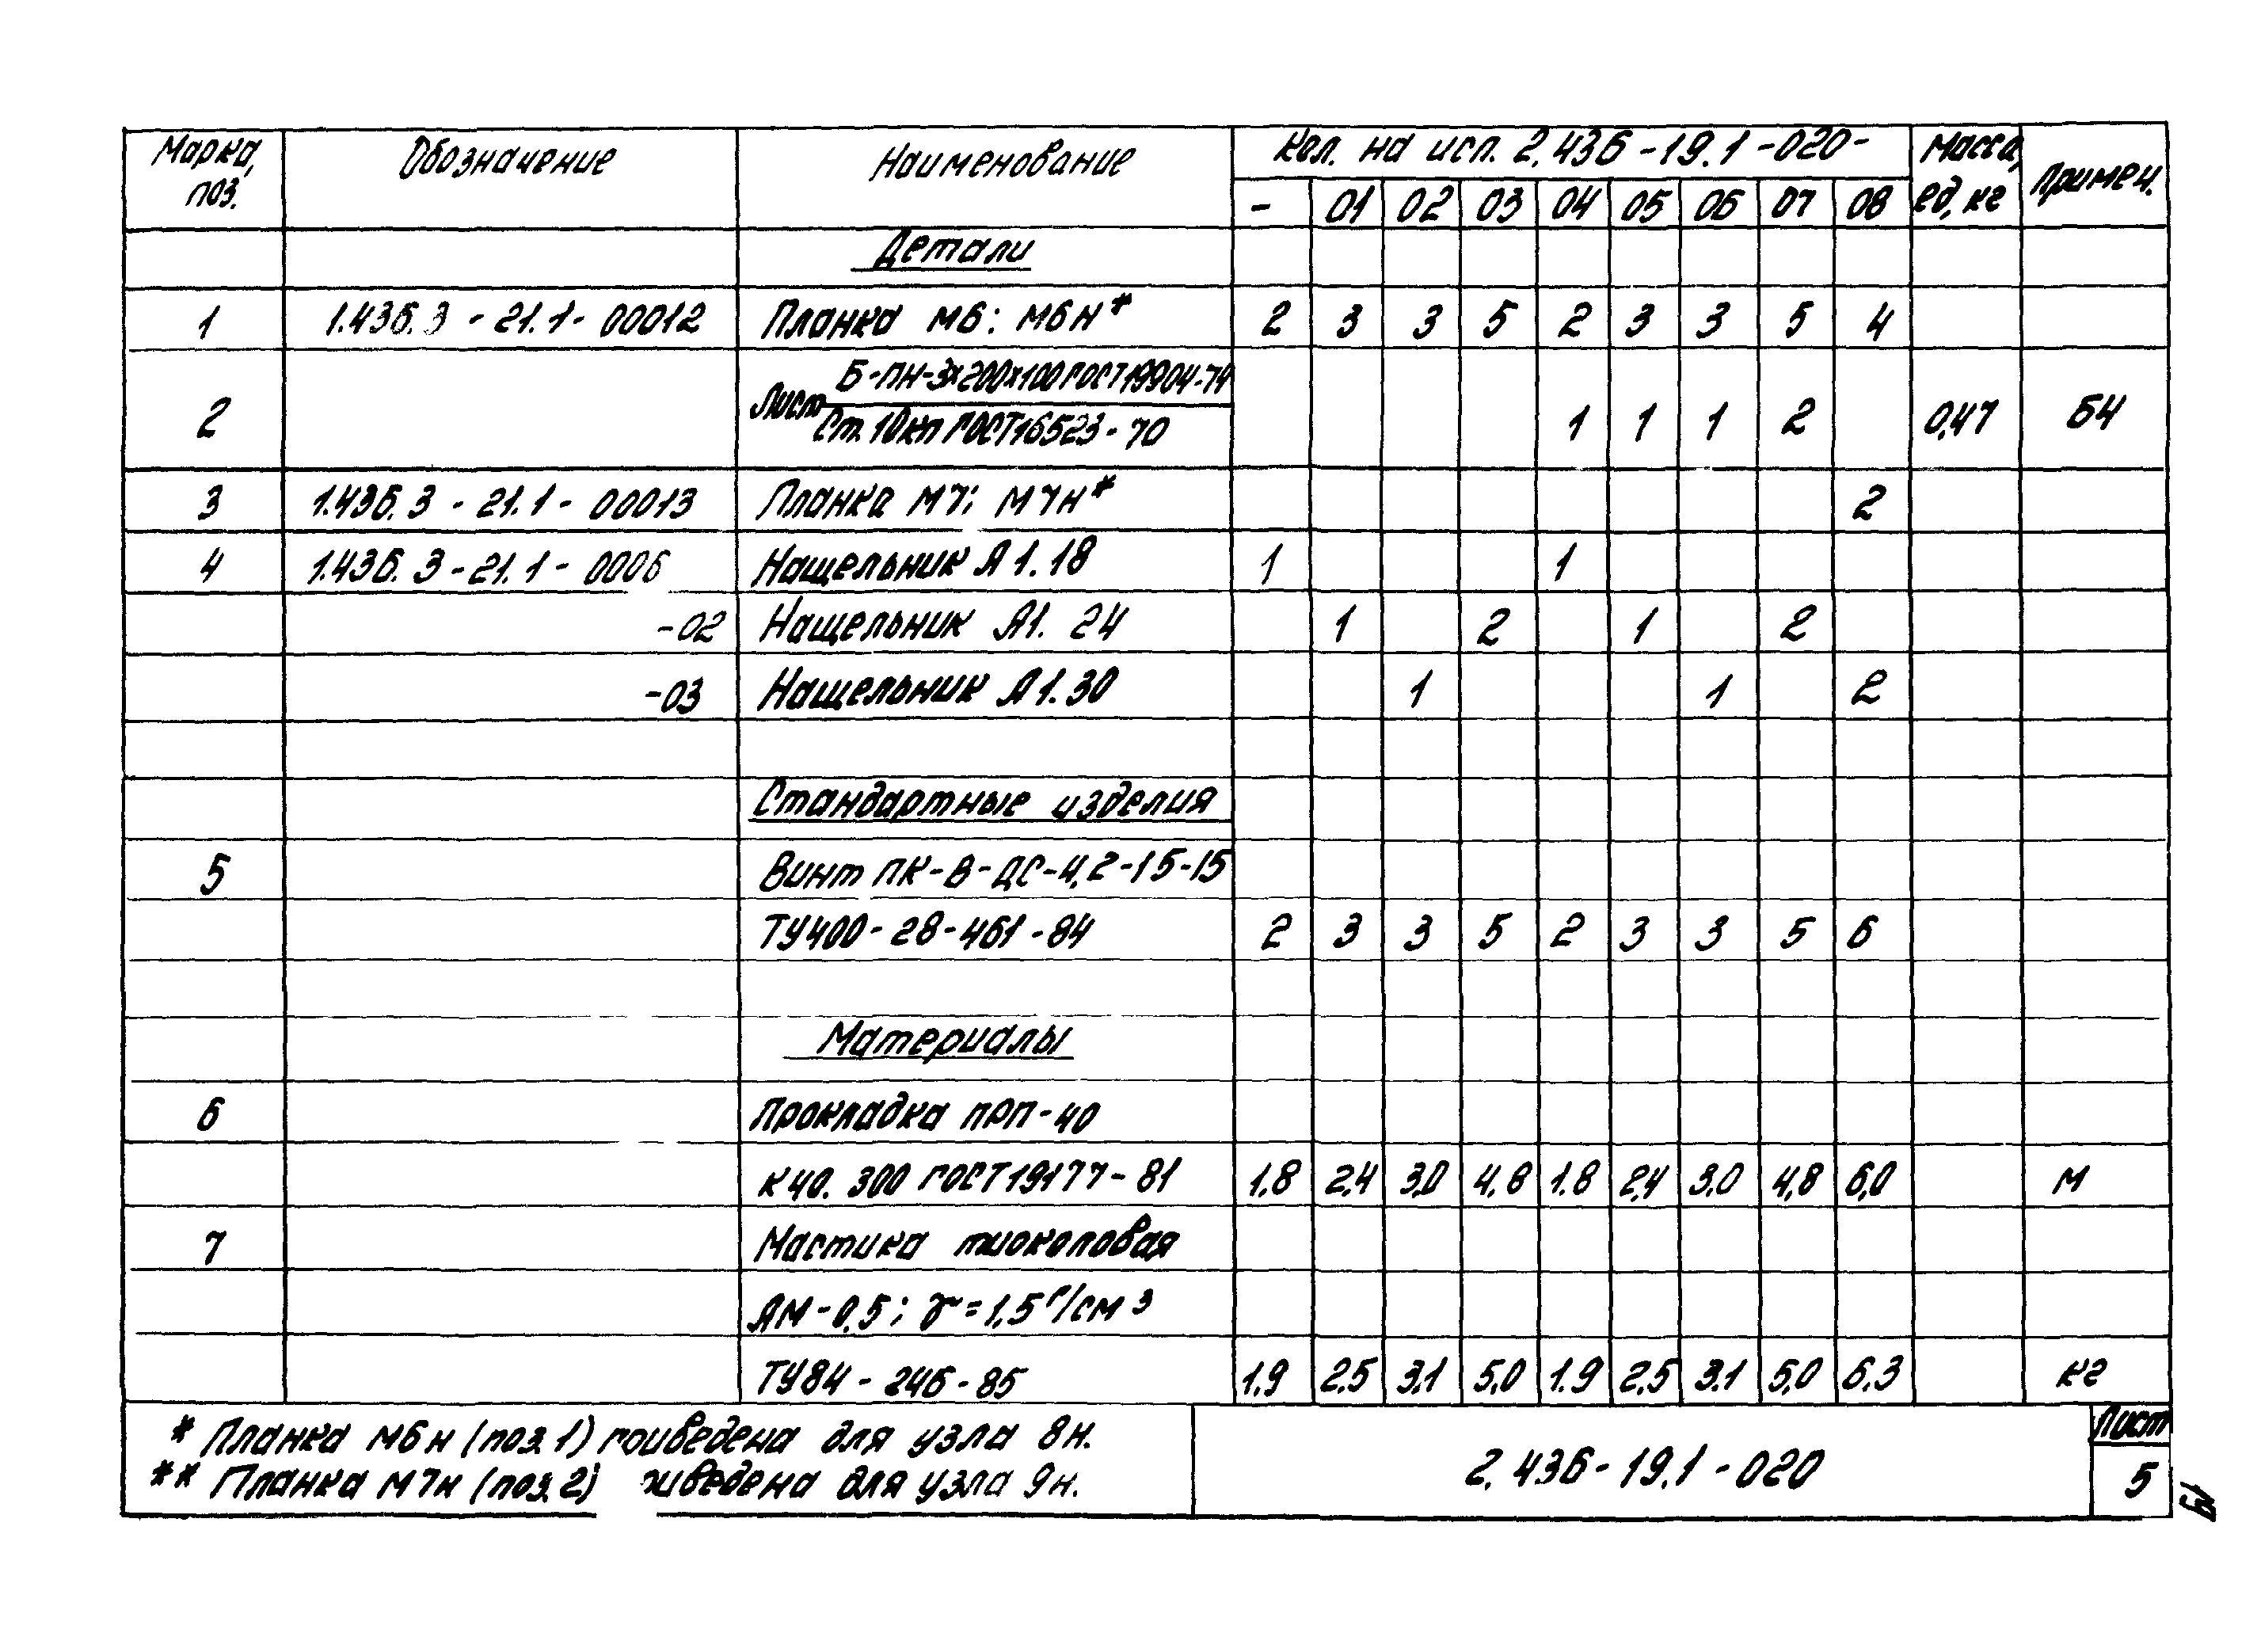 Марка, поз. Обозначение Наименование Кол. на исп. 2.436-19.1-020- Масса, ед, кг Примеч.
- 01 02 03 04 05 06 07 08
Детали
1 1.436.3-21.1-00012 Планка М6; М6Н* 2 3 3 5 2 3 3 5 4
2 Лист Б-ПН-3х200х100 ГОСТ 19904-74
Ст. 10кп ГОСТ 16523-70 1 1 1 2 0,47 БЧ
3 1.436.3-21.1-00013 Планка М7; М7Н* 2
4 1.436.3-21.1-0006 Нащельник А1.18 1 1
-02 Нащельник А1.24 1 2 1 2
-03 Нащельник А1.30 1 1 2
Стандартные изделия
5 Винт ПК-В-ДС-4,2-15-15
ТУ400-28-461-84 2 3 3 5 2 3 3 5 6
Материалы
6 Прокладка ПРП-40
К 40. 300 ГОСТ 19177-81 1,8 2,4 3,0 4,8 1.8 2,4 3.0 4,8 6,0 м
7 Мастика тиоколовая
АМ-0,5; γ=1,5 г/см 3
ТУ84-246-85 1,9 2,5 3,1 5,0 1.9 2,5 3.1 5,0 6,3 кг
* Планка М6н (поз. 1) приведена для узла 8н.
** Планка М7н (поз. 2) приведена для узла 9н.
2.436-19.1-020
Лист
5